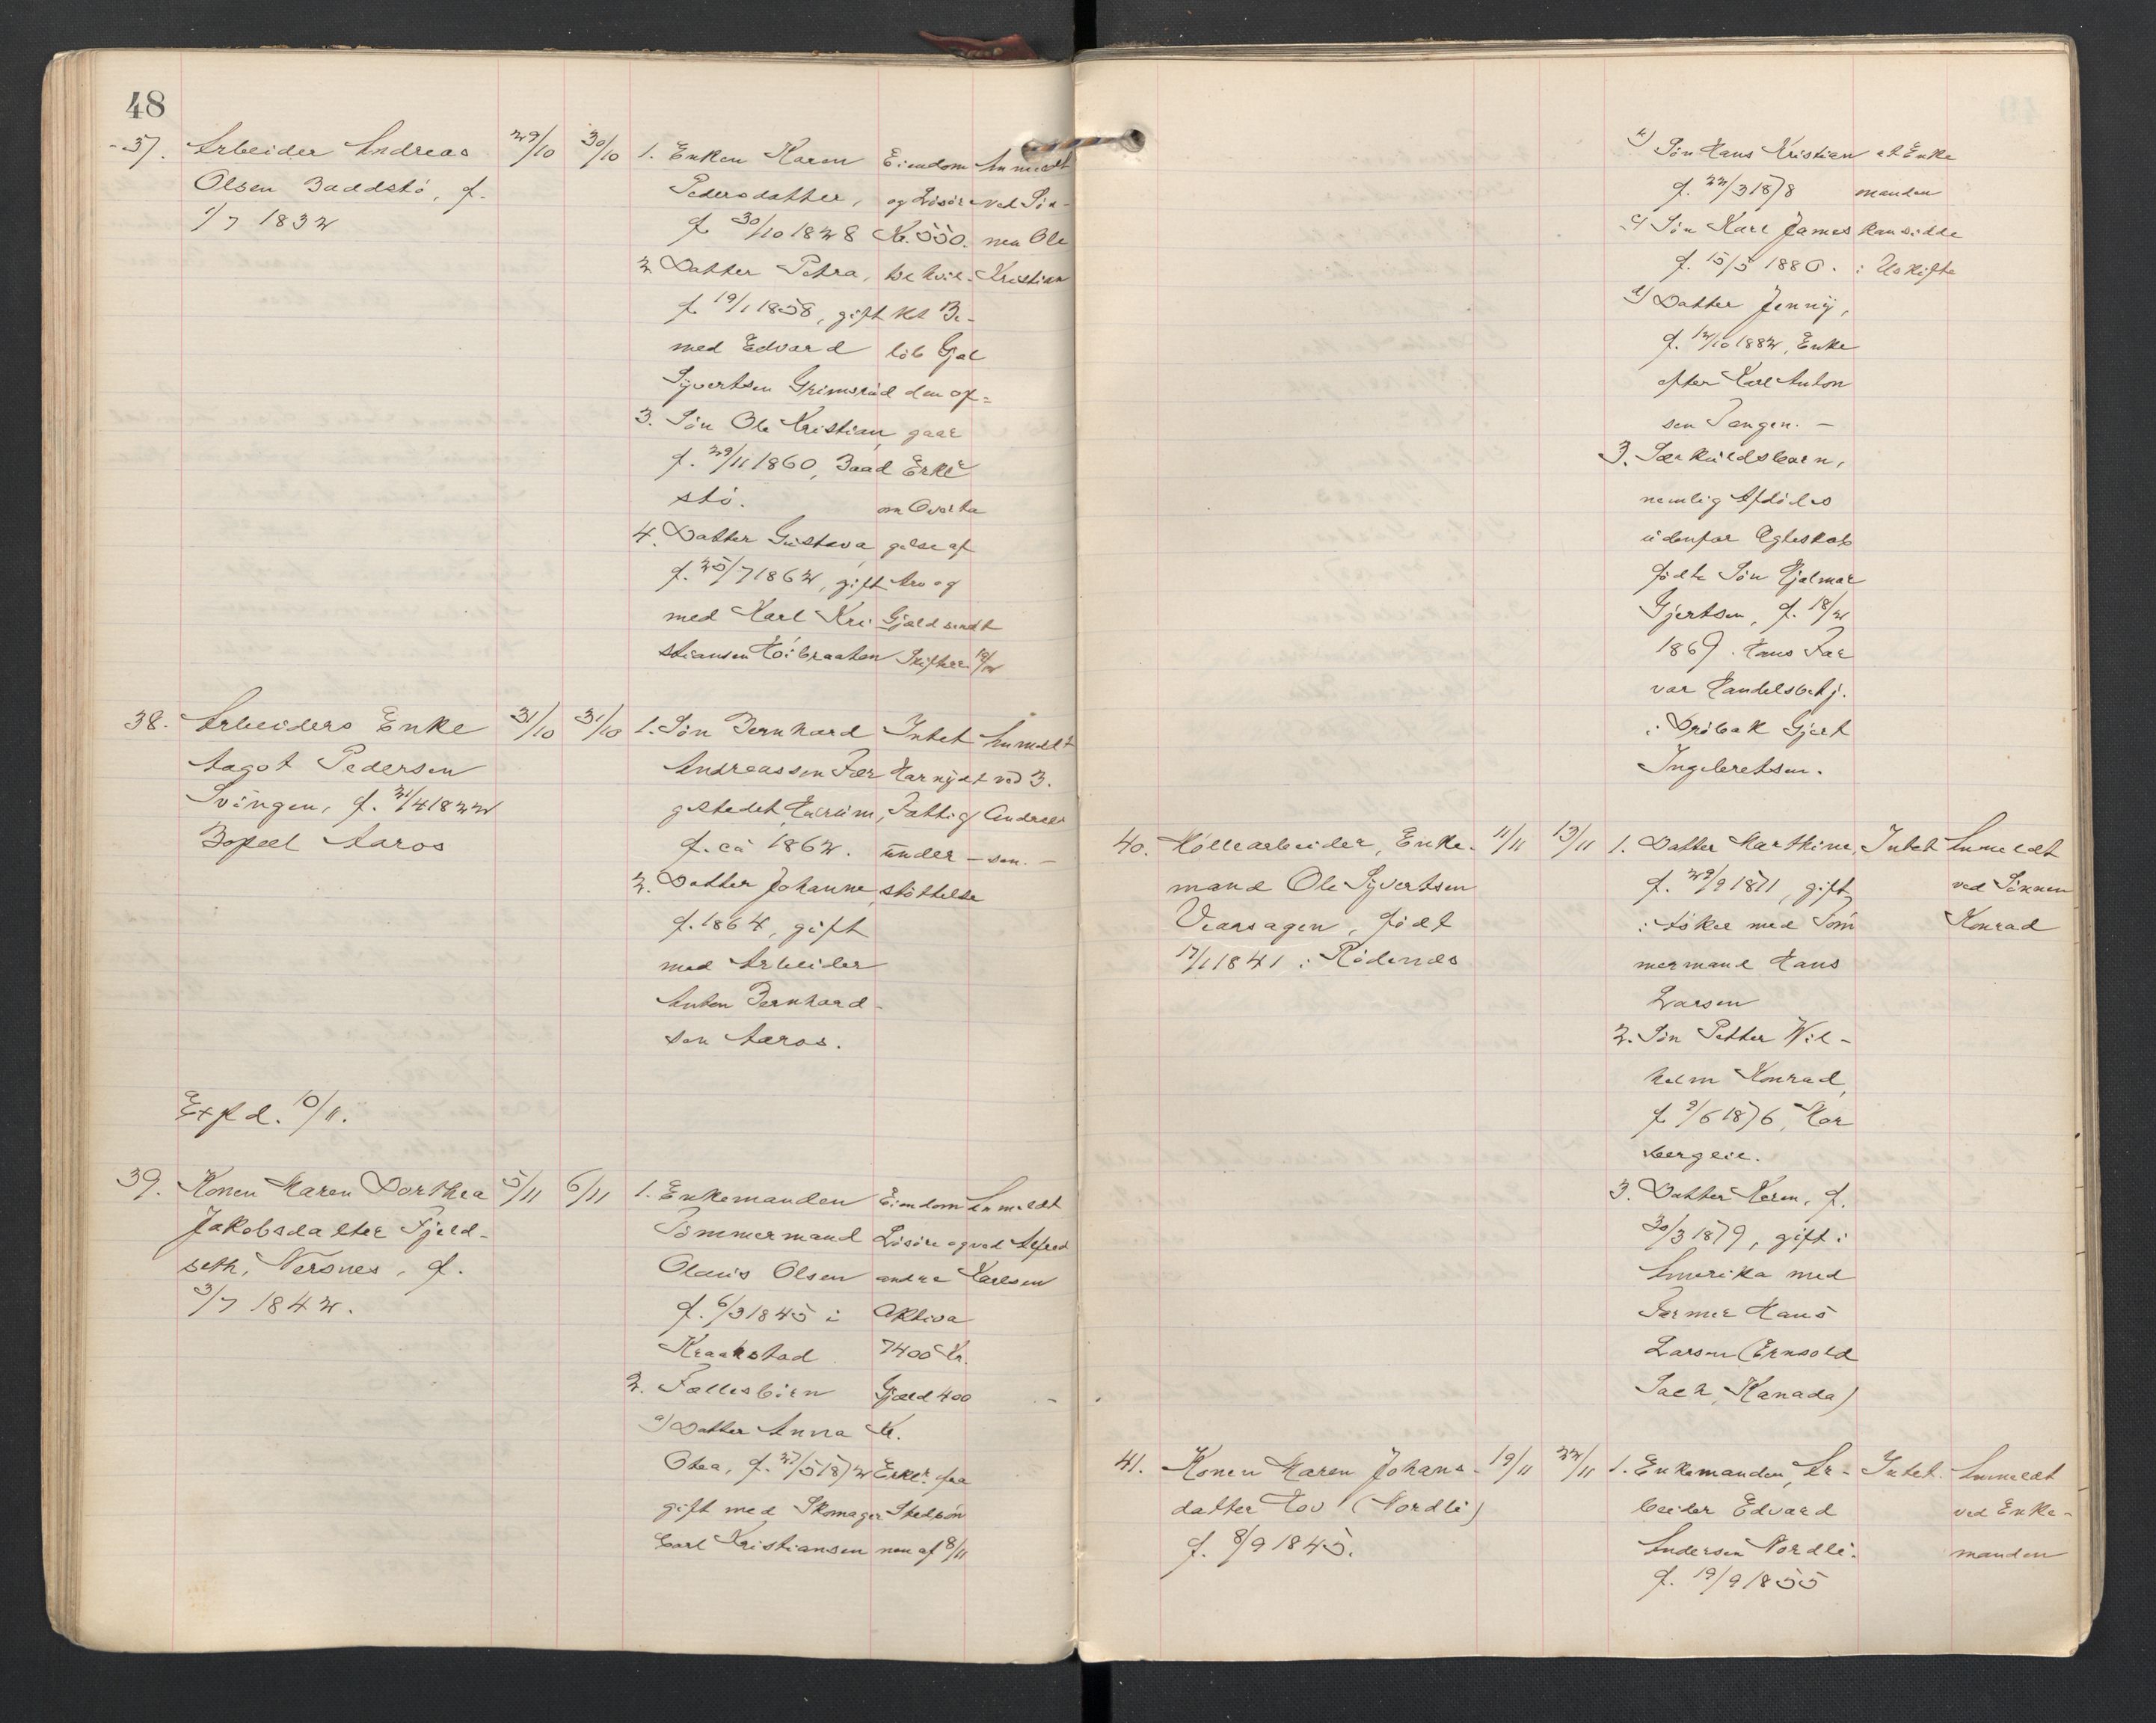 48
37. Arbeider Andreas
Olsen Baadstö, f.
1/7 1832
29/10 30/10
1. Enken Karen
Pedersdatter,
f. 30/10 1828
2. Datter Petra,
f. 19/1 1858, gift
med Edvard
Syvertsen Grimsrud
3. Sön Ole Kristian
f. 29/11 1860, Baad
stö.
4. Datter Gustava
f. 25/7 1862, gift
med Karl Kri
stiansen Höibraaten
Eiendom
og Lösöre
Kr. 550.
hvis
Be-
löb Gjæl
den op-
gaar
Erkl
om Overta
gelse af
Arv og
Gjæld sendt
Skifter. 12/12
Anmeldt
ved Sön-
nen Ole
Kristian
38. Arbeiders Enke
Aagot Pedersen
Svingen, f. 21/4 1822
Bopæl Aaros
31/10 31/10
1. Sön Bernhard
Andreassen Fær
gestedet, Hurum,
f. ca 1862.
2. Datter Johanne
f. 1864, gift
med Arbeider
Anton Bernhard-
sen Aaros.
Intet
Har nydt
Fattig
under-
stöttelse
Anmeldt
ved B.
Andreas
sen. -
Expd. 10/11.
39. Konen Maren Dorthea
Jakobsdatter Fjeld-
seth, Nersnes, f.
3/7 1842.
5/11 6/11
1. Enkemanden
Tömmermand
Olaus Olsen
f. 6/3 1845 i
Kraakstad
2. Fællesbörn
a) Datter Anna
Olea, f. 27/5 1872
gift med Skomager
Carl Kristiansen
Eiendom
Lösöre og
andre
Aktiva
7400 Kr.
Gjæld 400
Kr.
Erkl. fra
Stedsön
nen af 8/11
Anmeldt
ved Alfred
Karlsen
b) Sön Hans Kristian
f. 22/3 1878
c) Sön Karl James
f. 15/5 1880.
d) Datter Jenny,
f. 12/10 1882, Enke
efter Karl Anton
sen Tangen. -
3. Særkuldsbarn,
nemlig Afdödes
udenfor Ægteskab
födte Sön Hjalmar
Gjertsen, f. 18/2
1869. Hans Far
var Handelsbetj.
i Dröbak Gjert
Ingebretsen.
at Enke
manden
kan sidde
i Uskifte
40. Möllearbeider, Enke-
mand Ole Syvertsen
Vearsagen, födt
17/1 1841 i Rödenes
11/11 13/11
1. Datter Marthine,
f. 29/9 1871, gift
i Asker med Töm
mermand Hans
Larsen
2. Sön Petter Wil-
helm Konrad,
f. 9/6 1876, Kor
bergeie.
3. Datter Karen, f.
30/3 1879, gift i
Amerika med
Farmer Hans
Larsen (Ernsold
Sach, Kanada)
Intet
Anmeldt
ved Sönnen
Konrad
41. Konen Maren Johans-
datter Hov (Nordli)
f. 8/9 1845.
19/11 22/11
1. Enkemanden, Ar-
beider Edvard
Andersen Nordli.
f. 19/9 1855
Intet.
Anmeldt
ved Enke-
manden